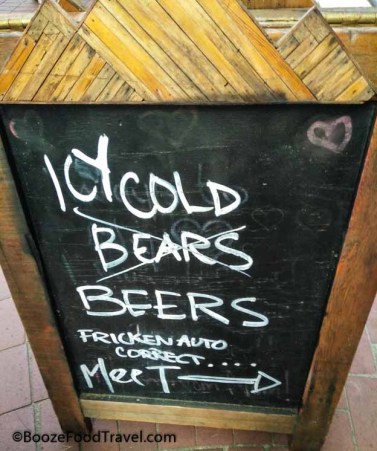 ICY COLD
BEARS
BEERS
FRICKEN AUTO
CORRECT....
MeeT
©BoozeFoodTravel.com